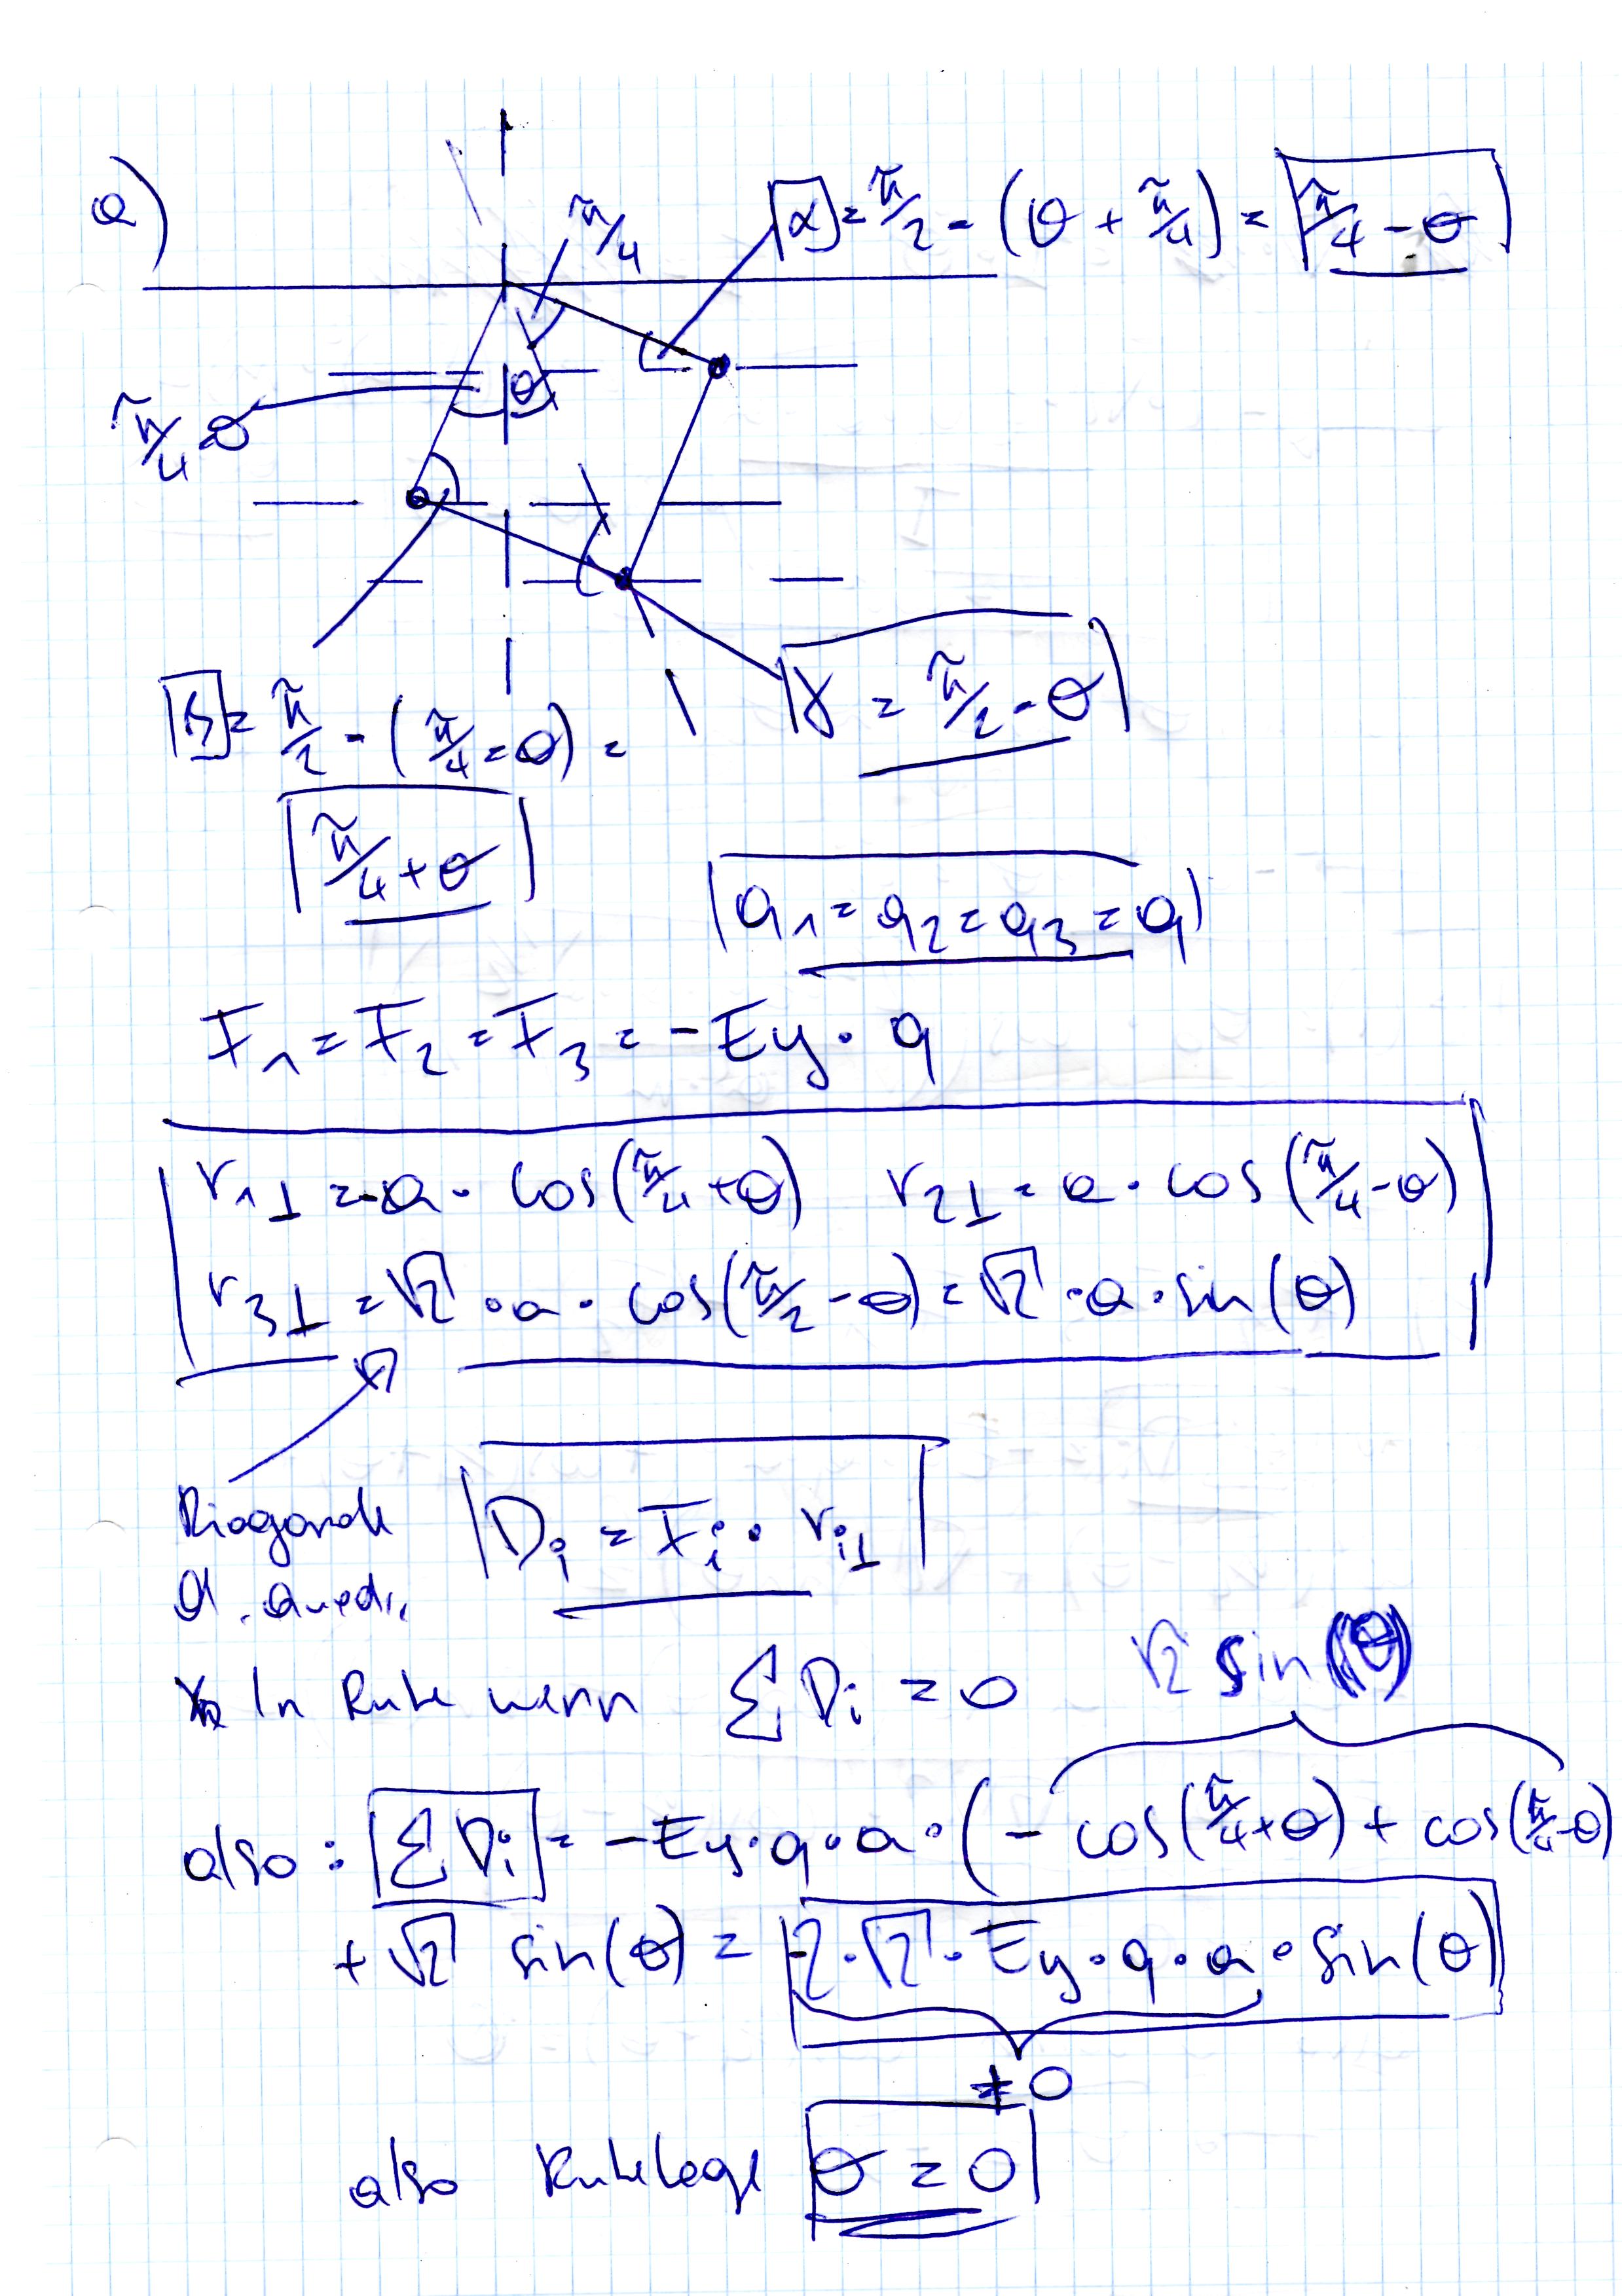 a)
π/4
α = π/2 - (θ + π/4) = π/4 - θ
θ
π/4 - θ
β = π/2 - (π/4 - θ) =
π/4 + θ
γ = π/2 - θ
q₁ = q₂ = q₃ = q
F₁ = F₂ = F₃ = -Ey · q
r₁⊥ = -a · cos(π/4 + θ) r₂⊥ = a · cos(π/4 - θ)
r₃⊥ = √2 · a · cos(π/2 - θ) = √2 · a · sin(θ)
Diagonale
d. Quadr.
Dᵢ = Fᵢ · rᵢ⊥
In Ruhe wenn ΣDᵢ = 0
√2 sin(θ)
also : ΣDᵢ = -Ey · q · a · (- cos(π/4 + θ) + cos(π/4 - θ)
+ √2 sin(θ) = -2 · √2 · Ey · q · a · sin(θ)
≠ 0
also Ruhelage θ = 0